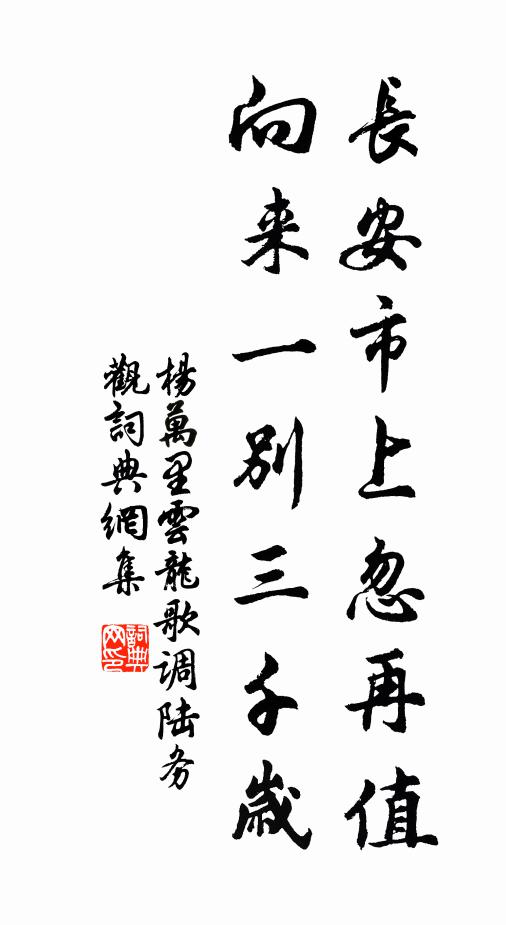 長安市上忽再值
向来一别三千歲
楊萬里雲龍歌调陆务
觀詞典網集
詞典
网印